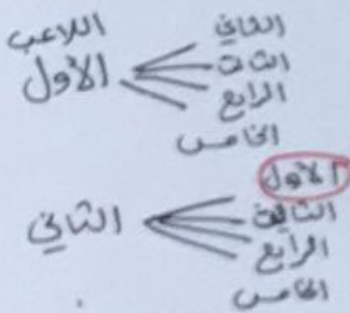 اللاعب
الأول
الثاني
الثالث
الرابع
الخامس
الثاني
الأول
الثالث
الرابع
الخامس